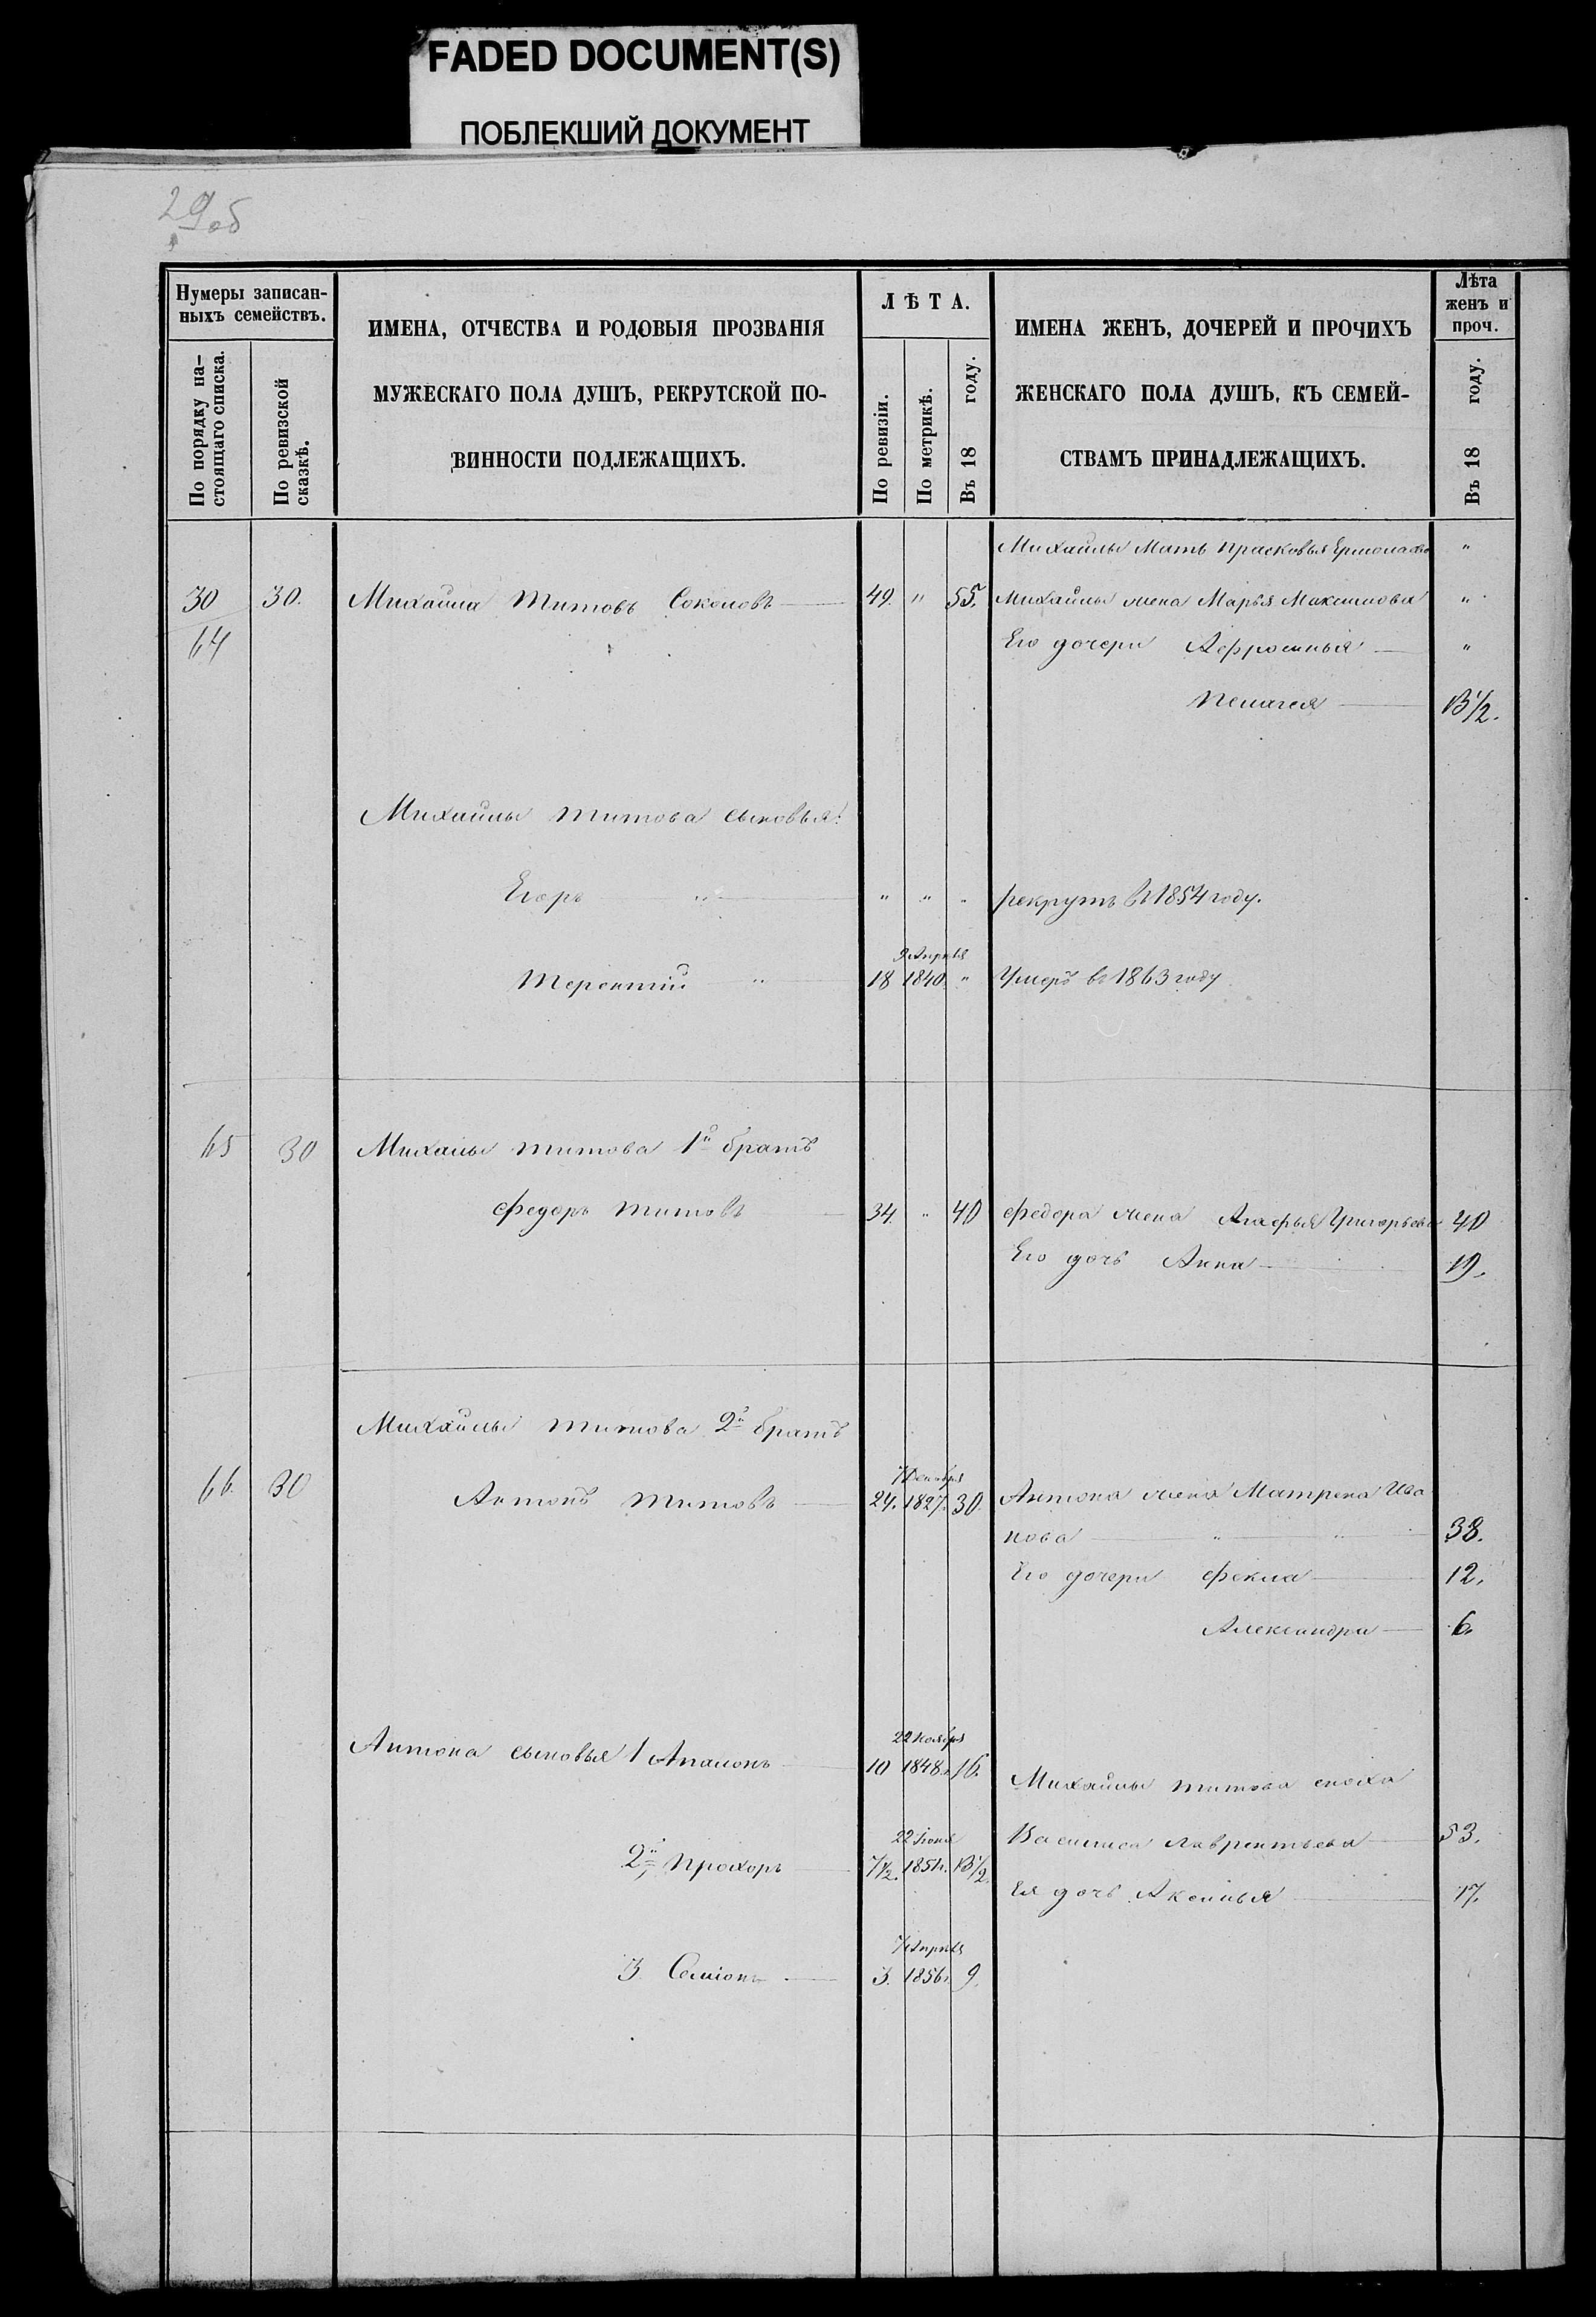 FADED DOCUMENT(S)
ПОБЛЕКШИЙ ДОКУМЕНТ
29об
Нумеры записан-
ныхъ семействъ.
По порядку на-
стоящаго списка.
По ревизской
сказкѣ.
ИМЕНА, ОТЧЕСТВА И РОДОВЫЯ ПРОЗВАНІЯ
МУЖЕСКАГО ПОЛА ДУШЪ, РЕКРУТСКОЙ ПО-
ВИННОСТИ ПОДЛЕЖАЩИХЪ.
ЛѢТА.
По ревизіи.
По метрикѣ.
Въ 18 году.
ИМЕНА ЖЕНЪ, ДОЧЕРЕЙ И ПРОЧИХЪ
ЖЕНСКАГО ПОЛА ДУШЪ, КЪ СЕМЕЙ-
СТВАМЪ ПРИНАДЛЕЖАЩИХЪ.
Лѣта
женъ и
проч.
Въ 18 году.
Михайлы Мать Прасковья "
30 30. Михайла Титовъ Соколовъ 49. " 55. Михайлы жена Марья Максимова "
64 Его дочери Афросинья "
Пелагея 13 1/2.
Михайлы Титова сыновья:
Егоръ " " " " рекрутъ въ 1854 году.
9 Апрѣля
Терентій " 18 1840. " Умеръ въ 1863 году
65 30 Михайлы Титова 1й братъ
Федоръ Титовъ 34. " 40 Федора жена Агафья Григорьева 40
Его дочь Анна 19.
Михайлы Титова 2й братъ
7 Декабря
66. 30 Антонъ Титовъ 24. 1827. 30. Антона жена Матрена Ива
нова " " 38.
Его дочери Фекла 12.
Александра 6.
22 Ноября
Антона сыновья 1 Апалонъ 10 1848. 16.
Михайлы Титова сноха
22 Іюня
Василиса Лаврентьева 53.
2й Прохоръ 7 1/2. 1851. 13 1/2.
Ея дочь Аксинья 17.
7 Апрѣля
3 Семіонъ 3. 1856. 9.